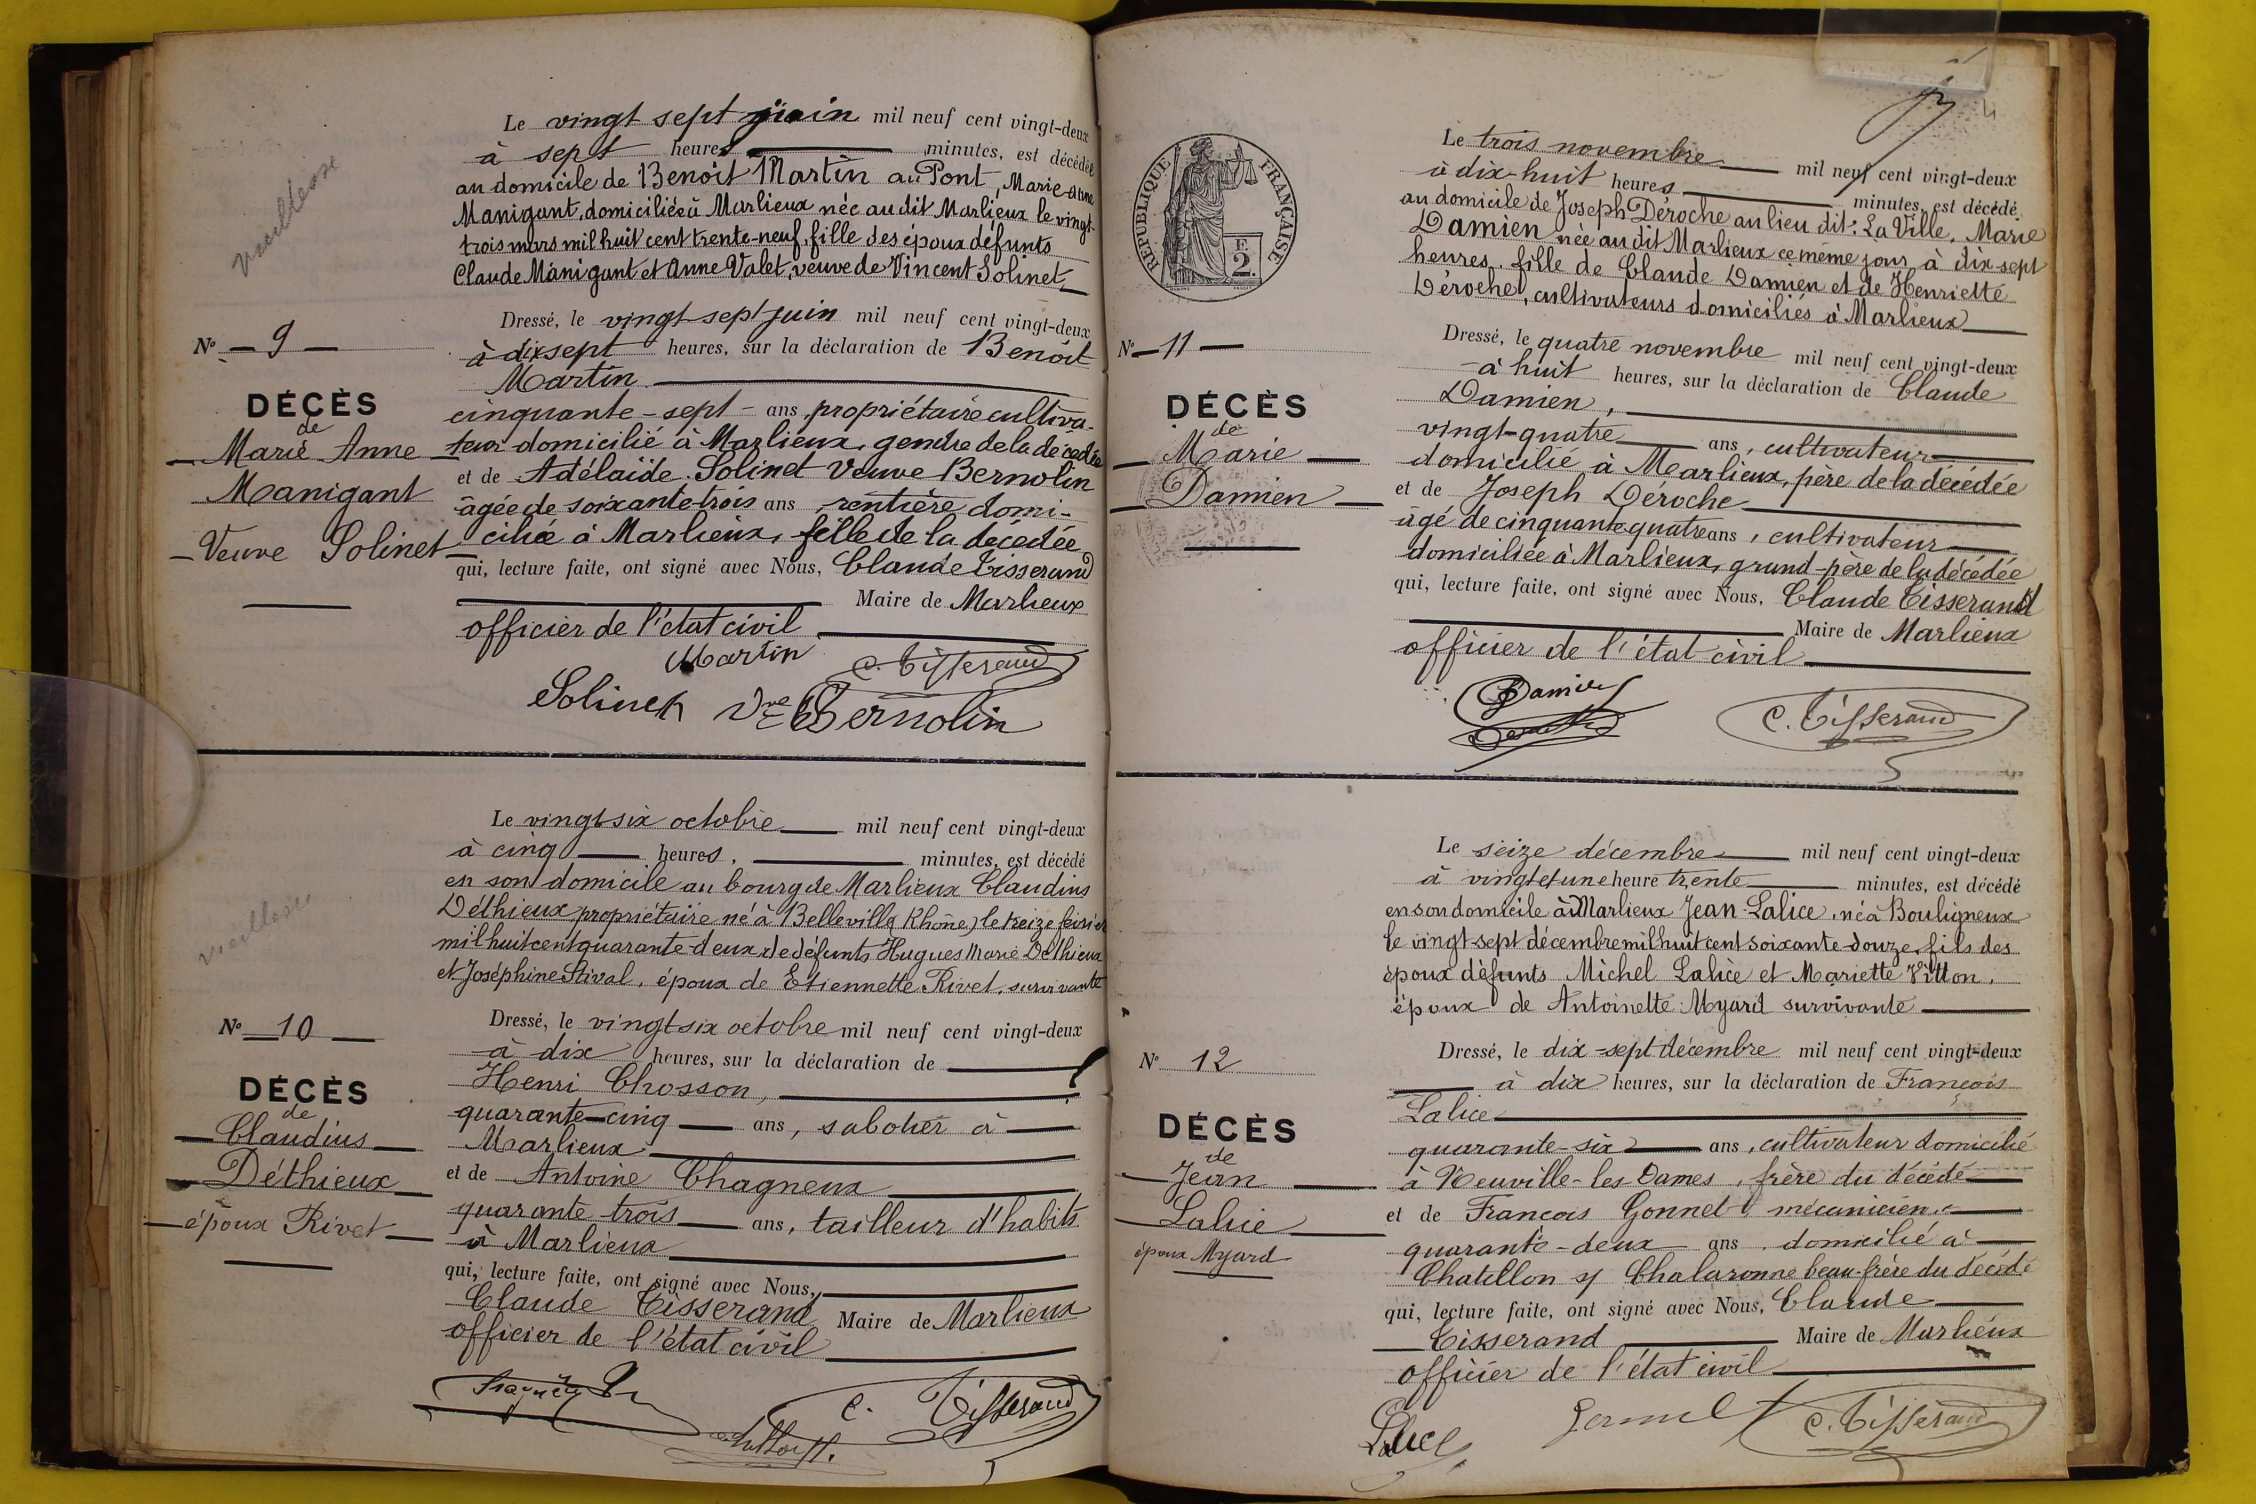 vieillesse
Le vingt sept juin mil neuf cent vingt-deux
à sept heures minutes, est décédée
au domicile de Benoit Martin au Pont, Marie-Anne
Manigant, domiciliée à Marlieux née au dit Marlieux le vingt-
trois mars mil huit cent trente-neuf, fille des époux défunts
Claude Manigant et Anne Valet, veuve de Vincent Solinet
Dressé, le vingt-sept juin mil neuf cent vingt-deux
à dix sept heures, sur la déclaration de Benoit
Martin
cinquante-sept ans, propriétaire cultiva-
teur domicilié à Marlieux, gendre de la décédée
et de Adélaïde Solinet Veuve Bernolin
âgée de soixante trois ans, rentière domi-
ciliée à Marlieux, fille de la décédée
qui, lecture faite, ont signé avec Nous, Claude Tisserand
Maire de Marlieux
officier de l'état civil
Martin C. Tisserand
Solinet Vve Bernolin
No 9
DÉCÈS
de
Marie Anne
Manigant
Veuve Solinet
vieillesse
Le vingt six octobre mil neuf cent vingt-deux
à cinq heures, minutes, est décédé
en son domicile au bourg de Marlieux Claudius
Déthieux, propriétaire né à Belleville (Rhône) le treize février
mil huit cent quarante-deux, de défunts Hugues Marie Déthieux
et Joséphine Stival, époux de Etiennette Rivet, survivante
Dressé, le vingt six octobre mil neuf cent vingt-deux
à dix heures, sur la déclaration de
Henri Chosson,
quarante-cinq ans, sabotier à
Marlieux
et de Antoine Chagneux
quarante trois ans, tailleur d'habits
à Marlieux
qui, lecture faite, ont signé avec Nous,
Claude Tisserand Maire de Marlieux
officier de l'état civil
C. Tisserand
No 10
DÉCÈS
de
Claudius
Déthieux
époux Rivet
RÉPUBLIQUE FRANÇAISE
F.
2.
Le trois novembre mil neuf cent vingt-deux
à dix-huit heures minutes, est décédé
au domicile de Joseph Déroche au lieu dit: La Ville, Marie
Damien née au dit Marlieux ce même jour à dix sept
heures, fille de Claude Damien et de Henriette
Déroche, cultivateurs domiciliés à Marlieux
Dressé, le quatre novembre mil neuf cent vingt-deux
à huit heures, sur la déclaration de Claude
Damien,
vingt-quatre ans, cultivateur
domicilié à Marlieux, père de la décédée
et de Joseph Déroche
âgé de cinquante quatre ans, cultivateur
domiciliée à Marlieux, grand-père de la décédée
qui, lecture faite, ont signé avec Nous, Claude Tisserand
Maire de Marlieux
officier de l'état civil
Damien
C. Tisserand
No 11
DÉCÈS
de
Marie
Damien
Le seize décembre mil neuf cent vingt-deux
à vingt et une heure trente minutes, est décédé
en son domicile à Marlieux Jean Lalice, né à Bouligneux
le vingt-sept décembre mil huit cent soixante-douze, fils des
époux défunts Michel Lalice et Mariette Vitton,
époux de Antoinette Myard survivante
Dressé, le dix-sept décembre mil neuf cent vingt-deux
à dix heures, sur la déclaration de François
Lalice
quarante-six ans, cultivateur domicilié
à Neuville-les Dames, frère du décédé
et de François Gonnet mécanicien,
quarante-deux ans, domicilié à
Chatillon s/ Chalaronne beau-frère du décédé
qui, lecture faite, ont signé avec Nous, Claude
Tisserand Maire de Marlieux
officier de l'état civil
Lalice C. Tisserand
No 12
DÉCÈS
de
Jean
Lalice
époux Myard